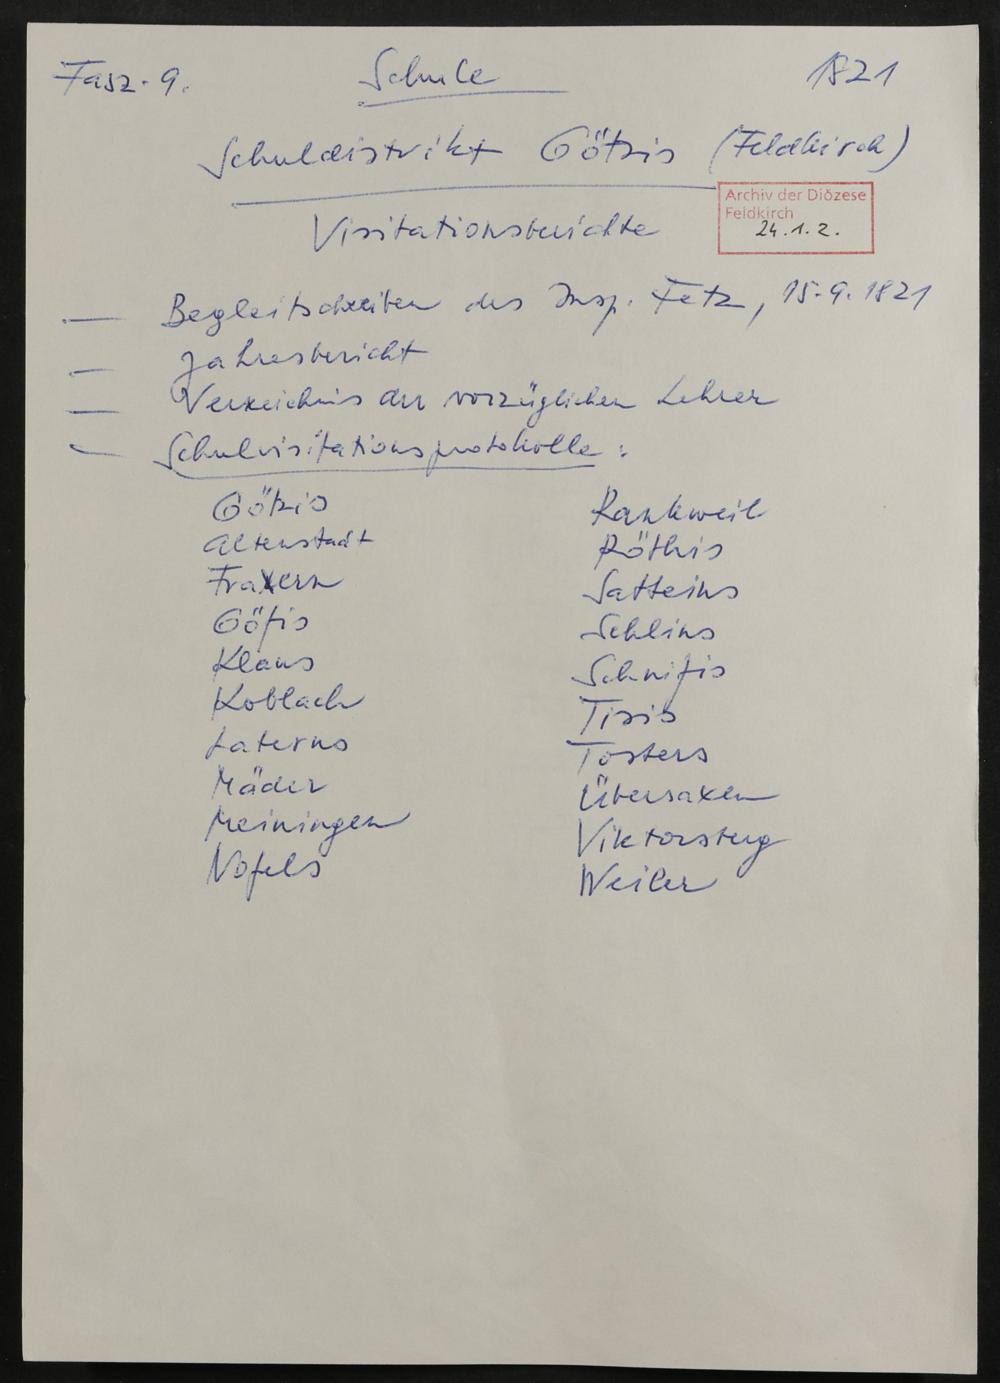 Fasz. 9.
Schule
1821
Schuldistrikt Götzis (Feldkirch)
Archiv der Diözese
Feldkirch
24.1.2.
Visitationsberichte
— Begleitschreiben des Insp. Fetz, 15.9.1821
— Jahresbericht
— Verzeichnis der vorzüglichen Lehrer
— Schulvisitationsprotokolle:
Götzis
Altenstadt
Fraxern
Göfis
Klaus
Koblach
Laterns
Mäder
Meiningen
Nofels
Rankweil
Röthis
Satteins
Schlins
Schnifis
Tisis
Tosters
Übersaxen
Viktorsberg
Weiler